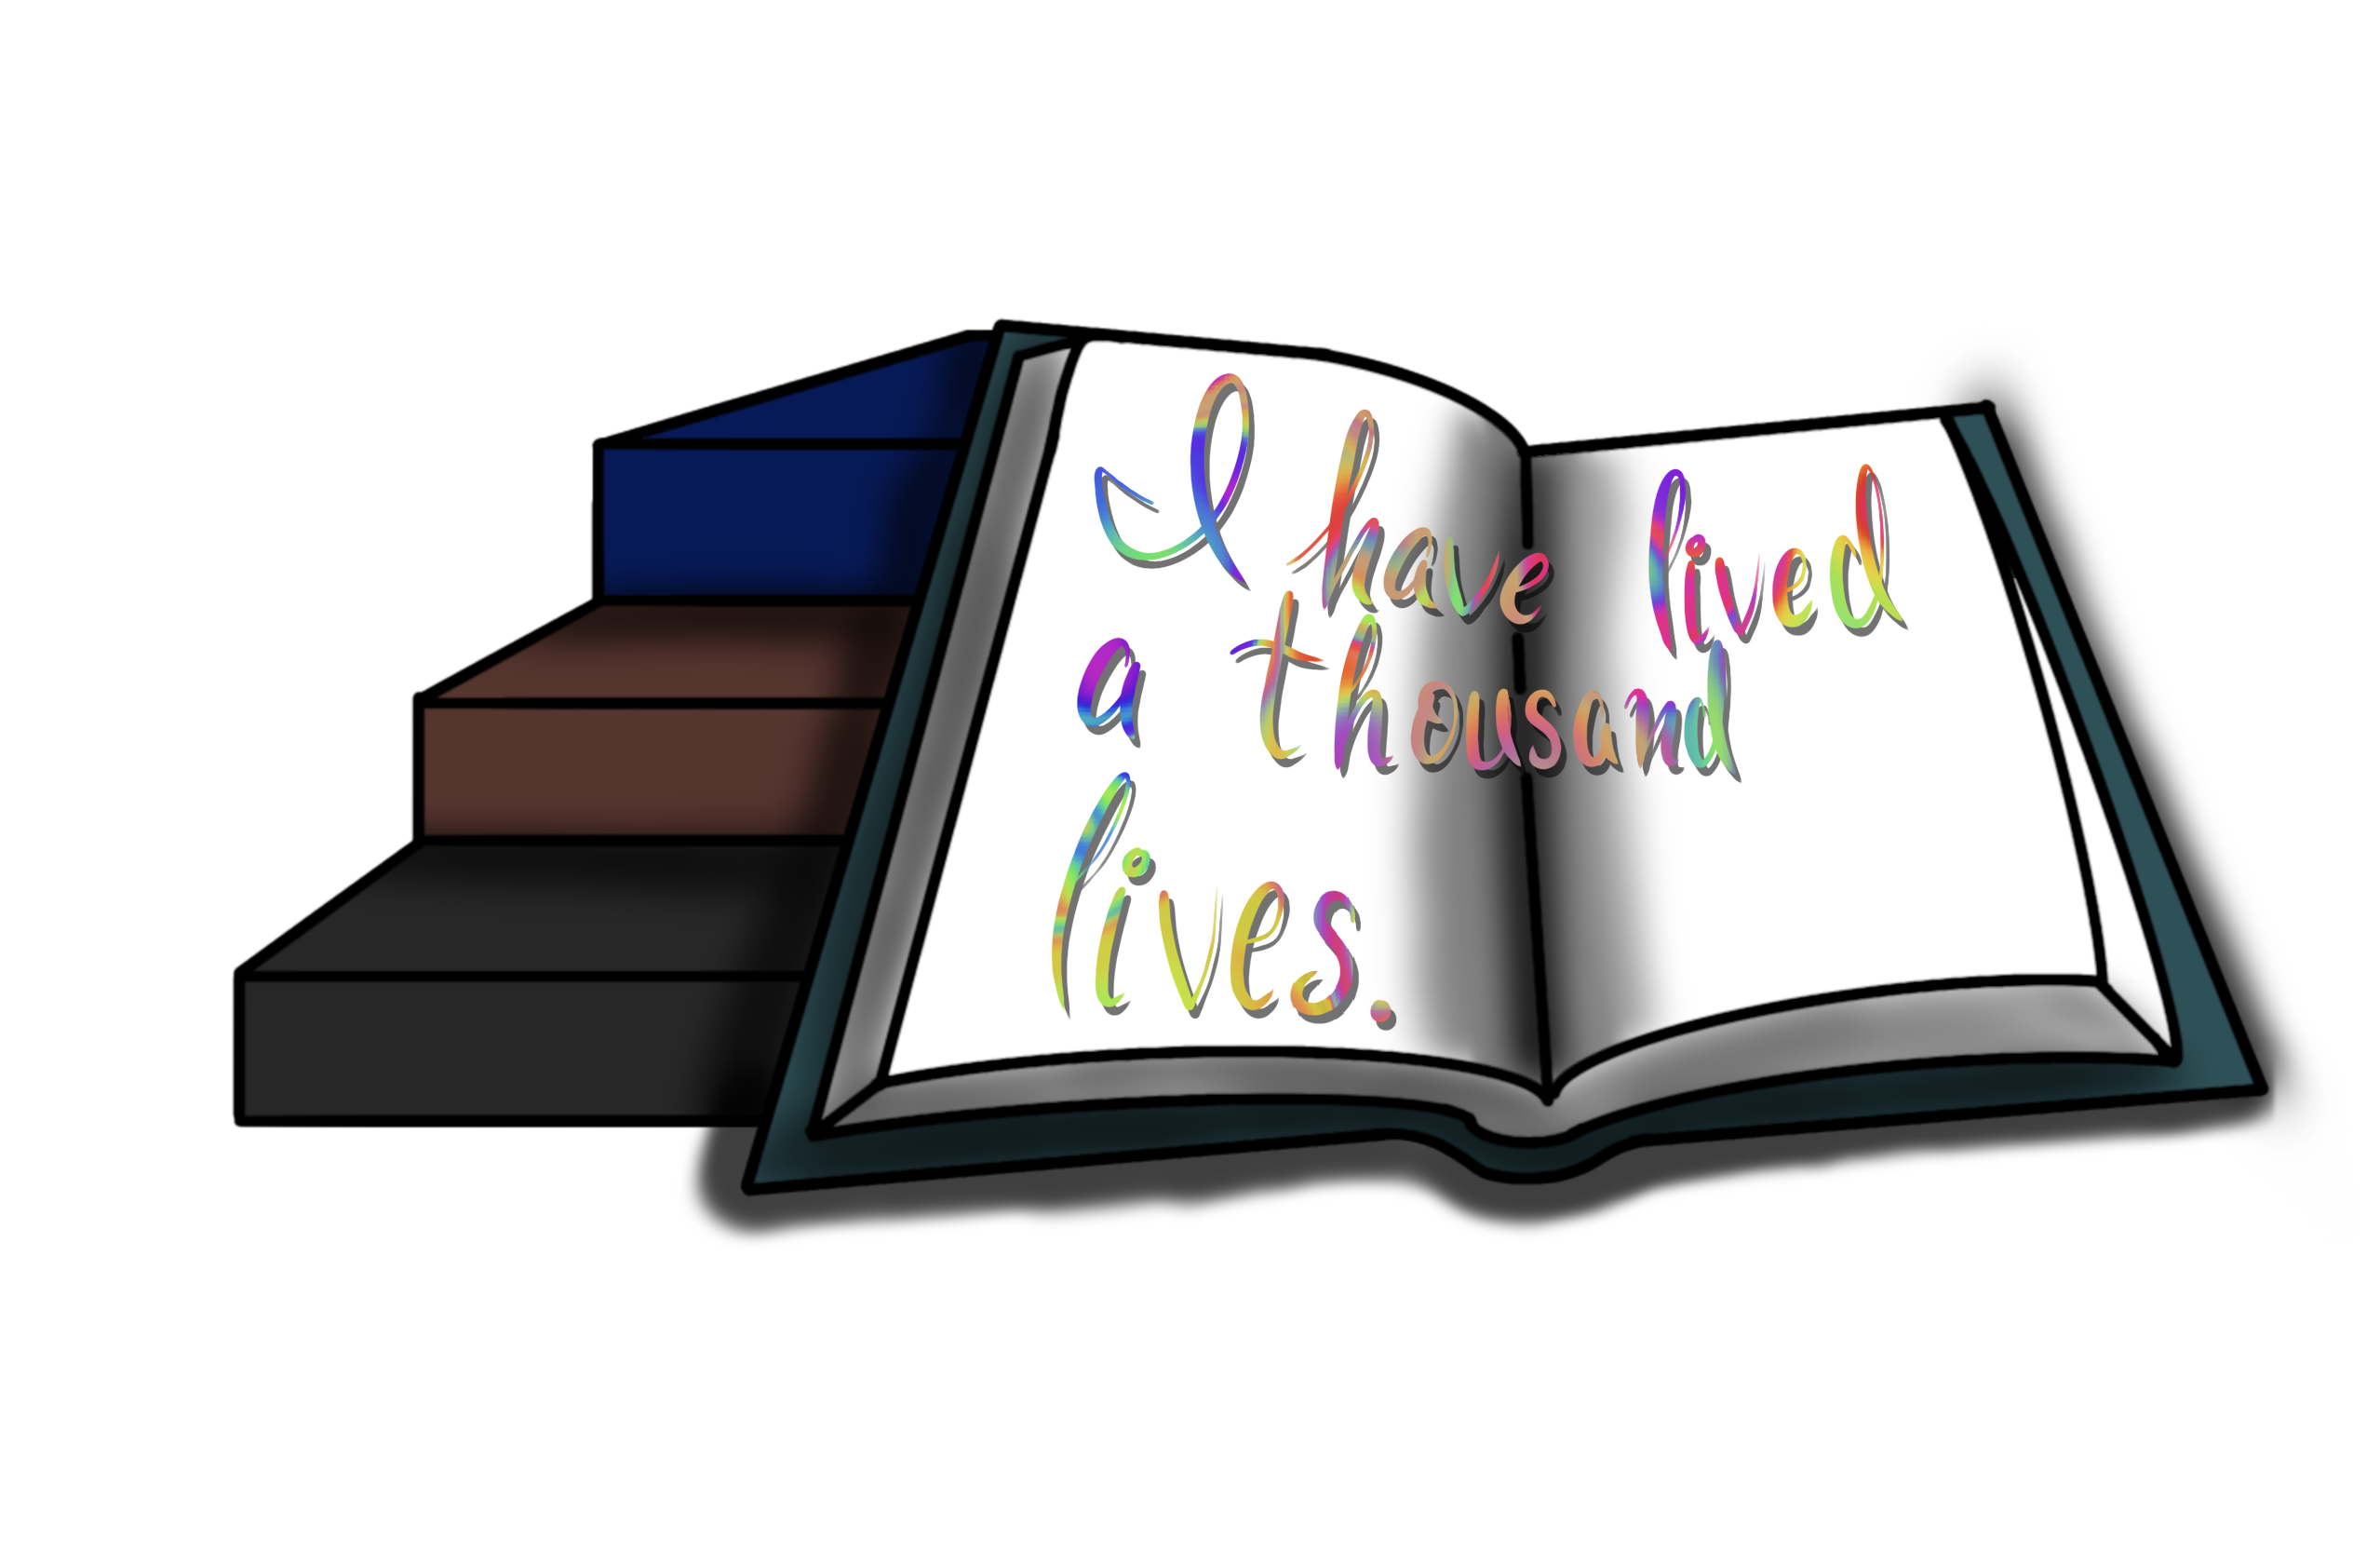 I have lived
a thousand
lives.